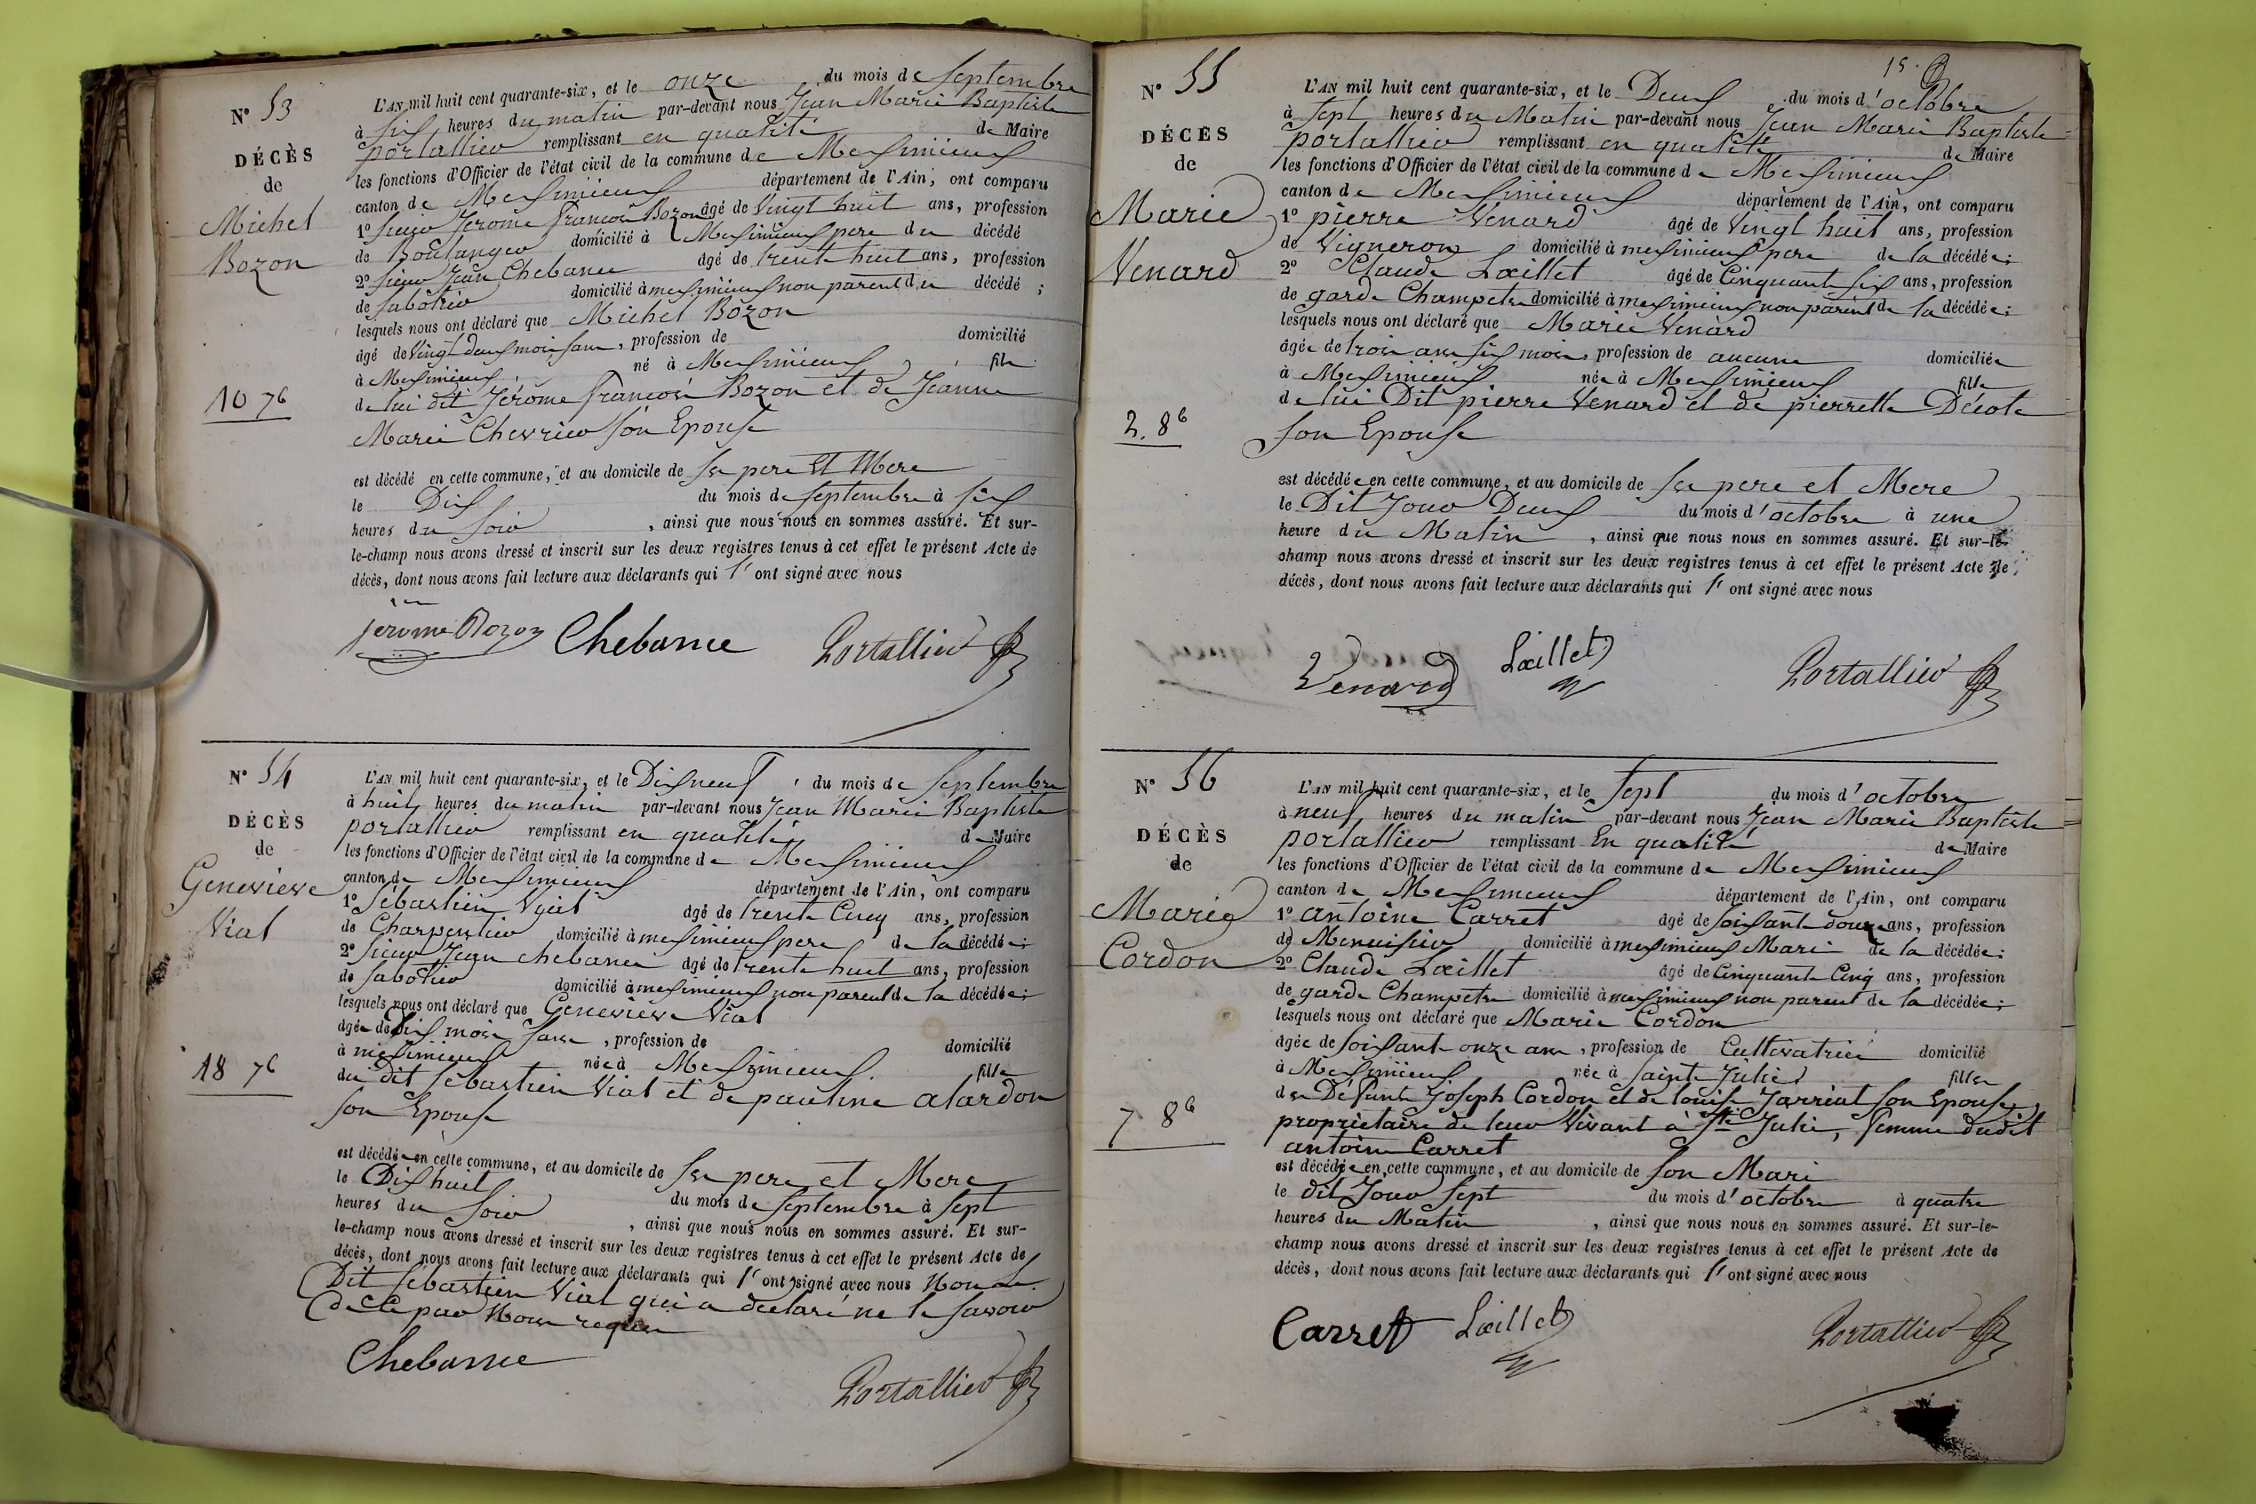 N° 53
DÉCÈS
de
Michel
Bozon
10 7b
L'AN mil huit cent quarante-six, et le onze du mois de septembre
à six heures du matin par-devant nous Jean Marie Baptiste
portallier remplissant en qualité de Maire
les fonctions d'Officier de l'état civil de la commune de Meximieux
canton de Meximieux département de l'Ain, ont comparu
1° sieur Jerome francois Bozon âgé de Vingt huit ans, profession
de Boulanger domicilié à Meximieux pere du décédé
2° sieur Jean Chebance âgé de trente huit ans, profession
de sabotier domicilié à meximieux non parent du décédé ;
lesquels nous ont déclaré que Michel Bozon
âgé de Vingt deux mois , profession de domicilié
à Meximieux né à Meximieux fils
de lui dit Jérôme francois Bozon et de Jeanne
Marie Chevrier son Epouse
est décédé en cette commune, et au domicile de ses pere et Mere
le Dix du mois de septembre à six
heures du soir , ainsi que nous nous en sommes assuré. Et sur-
le-champ nous avons dressé et inscrit sur les deux registres tenus à cet effet le présent Acte de
décès, dont nous avons fait lecture aux déclarants qui l' ont signé avec nous
jerome Bozon Chebance Portallier
N° 54
DÉCÈS
de
Genevieve
Vial
18 7b
L'AN mil huit cent quarante-six, et le Dix neuf du mois de septembre
à huit heures du matin par-devant nous Jean Marie Baptiste
portallier remplissant en qualité de Maire
les fonctions d'Officier de l'état civil de la commune de Meximieux
canton de Meximieux département de l'Ain, ont comparu
1° Sébastien Vial âgé de trente Cinq ans, profession
de Charpentier domicilié à meximieux pere de la décédée ;
2° sieur Jean chebance âgé de trente huit ans, profession
de sabotier domicilié à meximieux non parent de la décédée ;
lesquels nous ont déclaré que Genevieve Vial
âgée de mois , profession de domicilié
à meximieux née à Meximieux fille
du dit Sébastien Vial et de pauline alardon
son Epouse
est décédée en cette commune, et au domicile de ses pere et Mere
le Dix huit du mois de septembre à sept
heures du soir , ainsi que nous nous en sommes assuré. Et sur-
le-champ nous avons dressé et inscrit sur les deux registres tenus à cet effet le présent Acte de
décès, dont nous avons fait lecture aux déclarants qui l' ont signé avec nous Non le
Dit Sébastien Vial qui a declaré ne le savoir
de ce par Nous requis
Chebance Portallier
15.
N° 55
DÉCÈS
de
Marie
Venard
2. 8b
L'AN mil huit cent quarante-six, et le Deux du mois d'octobre
à sept heures du Matin par-devant nous Jean Marie Baptiste
portallier remplissant en qualité de Maire
les fonctions d'Officier de l'état civil de la commune de Meximieux
canton de Meximieux département de l'Ain, ont comparu
1° pierre Venard âgé de Vingt huit ans, profession
de Vigneron domicilié à meximieux pere de la décédée ;
2° Claude Lœillet âgé de Cinquante six ans, profession
de garde Champetre domicilié à meximieux non parent de la décédée ;
lesquels nous ont déclaré que Marie Venard
âgée de trois ans six mois, profession de aucune domiciliée
à Meximieux née à Meximieux fille
de lui Dit pierre Venard et de pierrette Décote
son Epouse
est décédée en cette commune, et au domicile de ses pere et Mere
le Dit Jour Deux du mois d'octobre à une
heure du Matin , ainsi que nous nous en sommes assuré. Et sur-le-
champ nous avons dressé et inscrit sur les deux registres tenus à cet effet le présent Acte de
décès, dont nous avons fait lecture aux déclarants qui l' ont signé avec nous
Venard Lœillet Portallier
N° 56
DÉCÈS
de
Marie
Cordon
7 8b
L'AN mil huit cent quarante-six, et le sept du mois d'octobre
à neuf heures du matin par-devant nous Jean Marie Baptiste
portallier remplissant En qualité de Maire
les fonctions d'Officier de l'état civil de la commune de Meximieux
canton de Meximieux département de l'Ain, ont comparu
1° antoine Carret âgé de soixante douze ans, profession
de Menuisier domicilié à meximieux Mari de la décédée ;
2° Claude Lœillet âgé de Cinquante Cinq ans, profession
de garde Champetre domicilié à meximieux non parent de la décédée ;
lesquels nous ont déclaré que Marie Cordon
âgée de soixante onze ans , profession de Cultivatrice domicilié
à Meximieux née à sainte Julie fille
de Défunts joseph Cordon et de louise Jarriat son Epouse,
proprietaire de leur Vivant à Ste Julie, femme dudit
antoine Carret
est décédée en cette commune, et au domicile de son Mari
le dit Jour sept du mois d'octobre à quatre
heures du Matin , ainsi que nous nous en sommes assuré. Et sur-le-
champ nous avons dressé et inscrit sur les deux registres tenus à cet effet le présent Acte de
décès, dont nous avons fait lecture aux déclarants qui l' ont signé avec nous
Carret Lœillet Portallier